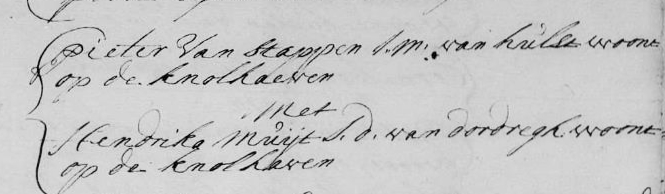 Pieter Van Stappen J.M. van hulst woont
op de knolhaeven
Met
Hendrika Muijt J.d. van dordregh woont
op de knolhaven